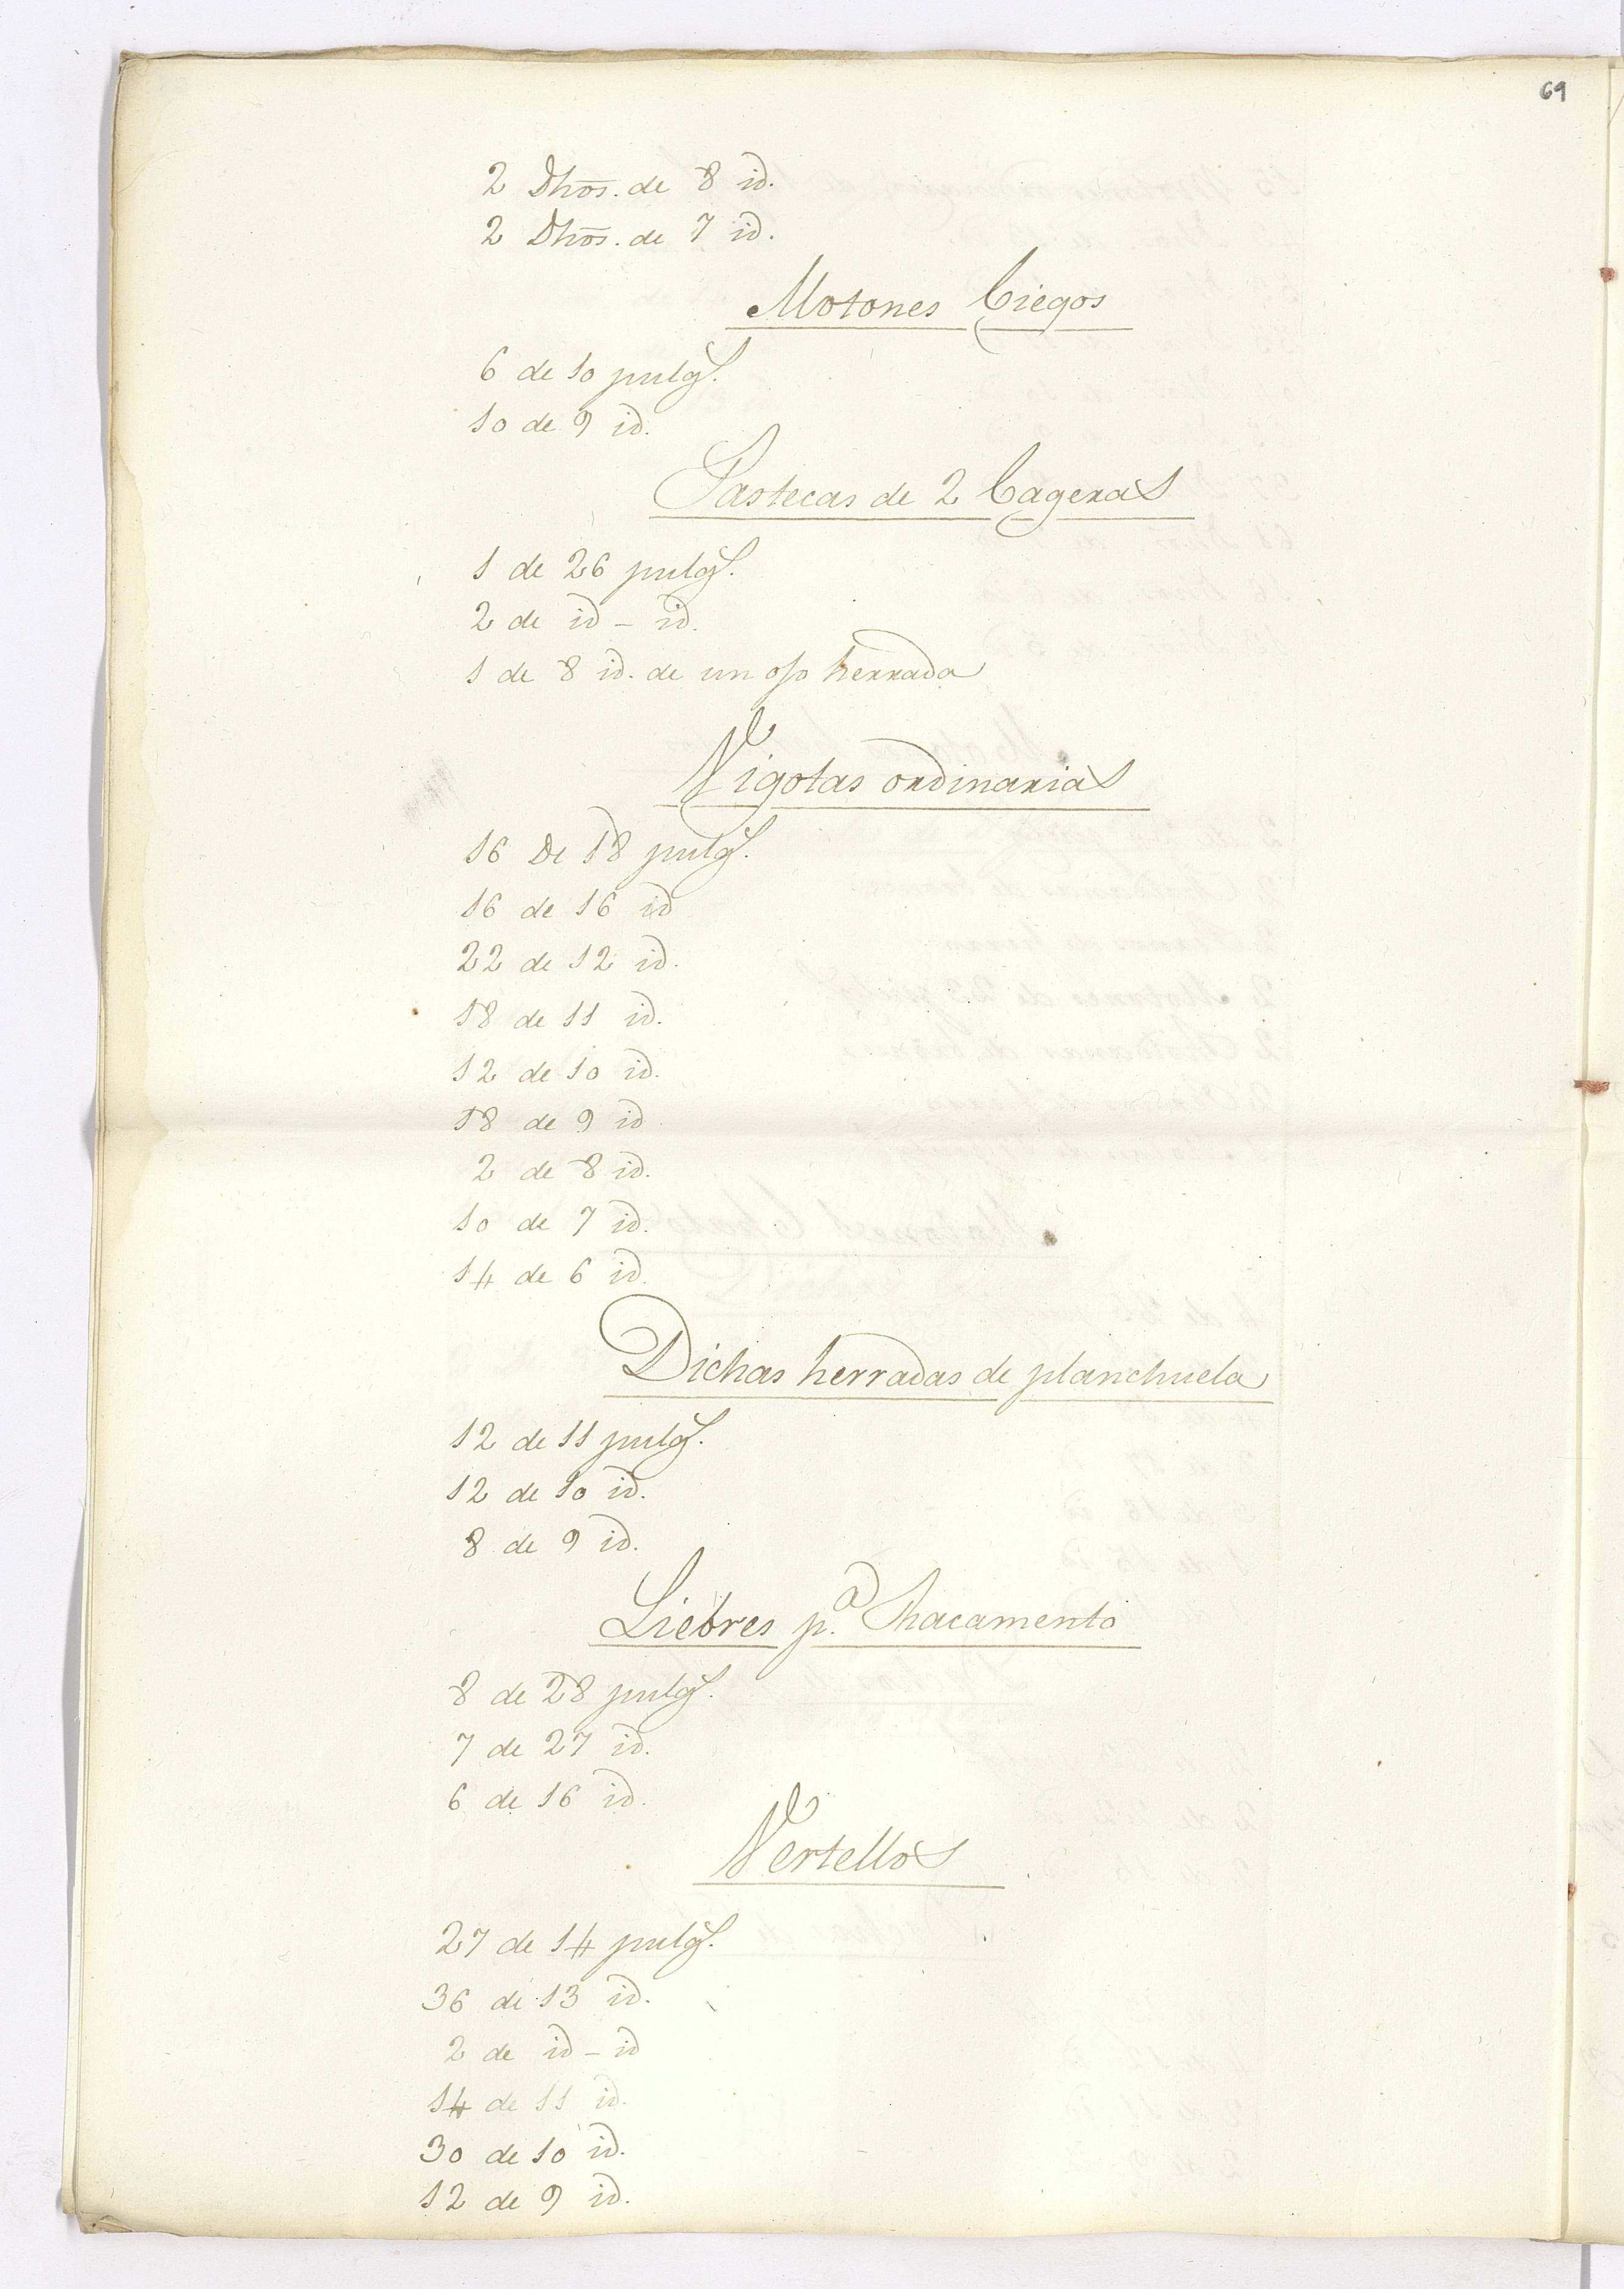 69
2 Dhos. de 8 id.
2 Dhos. de 7 id.
Motones Ciegos
6 de 10 pulgs.
10 de 9 id.
Pastecas de 2 Cageras
1 de 26 pulgs.
2 de id - id.
1 de 8 id. de un ojo herrada
Vigotas ordinarias
16 De 18 pulgs.
16 de 16 id
22 de 12 id.
18 de 11 id.
12 de 10 id.
18 de 9 id
2 de 8 id.
10 de 7 id.
14 de 6 id.
Dichas herradas de planchuela
12 de 11 pulgs.
12 de 10 id.
8 de 9 id.
Liebres pa. Rhacamento
8 de 28 pulgs.
7 de 27 id.
6 de 16 id.
Vertellos
27 de 14 pulgs.
36 de 13 id.
2 de id - id
14 de 11 id.
30 de 10 id.
12 de 9 id.